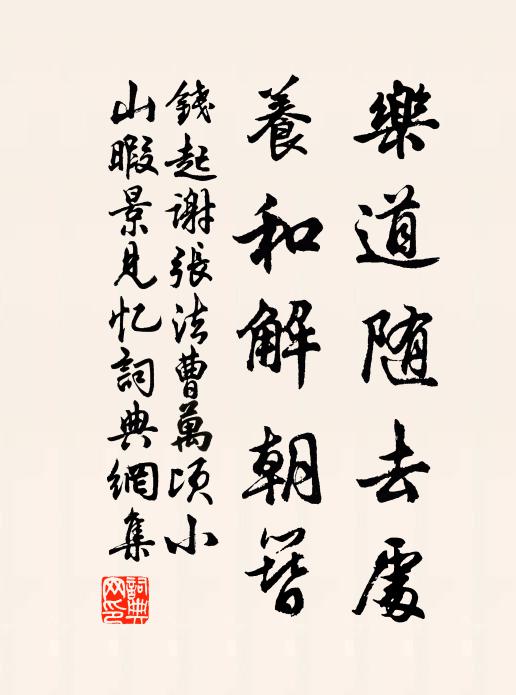 樂道随去處
養和解朝簪
錢起谢張法曹萬頃小
山暇景見忆詞典網集
詞典
网印